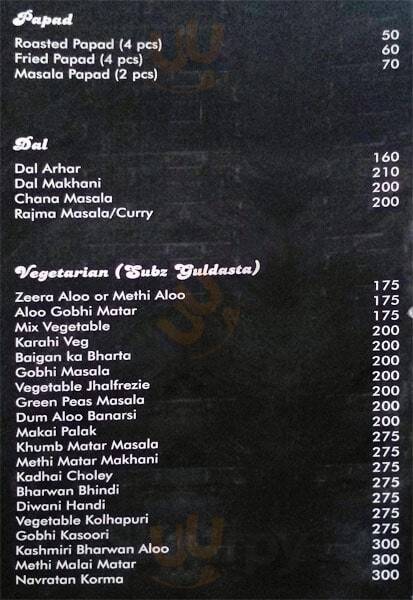 Papad
Roasted Papad (4 pcs) 50
Fried Papad (4 pcs) 60
Masala Papad (2 pcs) 70
Dal
Dal Arhar 160
Dal Makhani 210
Chana Masala 200
Rajma Masala/Curry 200
Vegetarian (Subz Guldasta)
Zeera Aloo or Methi Aloo 175
Aloo Gobhi Matar 175
Mix Vegetable 175
Karahi Veg 200
Baigan ka Bharta 200
Gobhi Masala 200
Vegetable Jhalfrezie 200
Green Peas Masala 200
Dum Aloo Banarsi 200
Makai Palak 200
Khumb Matar Masala 275
Methi Matar Makhani 275
Kadhai Choley 275
Bharwan Bhindi 275
Diwani Handi 275
Vegetable Kolhapuri 275
Gobhi Kasoori 275
Kashmiri Bharwan Aloo 300
Methi Malai Matar 300
Navratan Korma 300